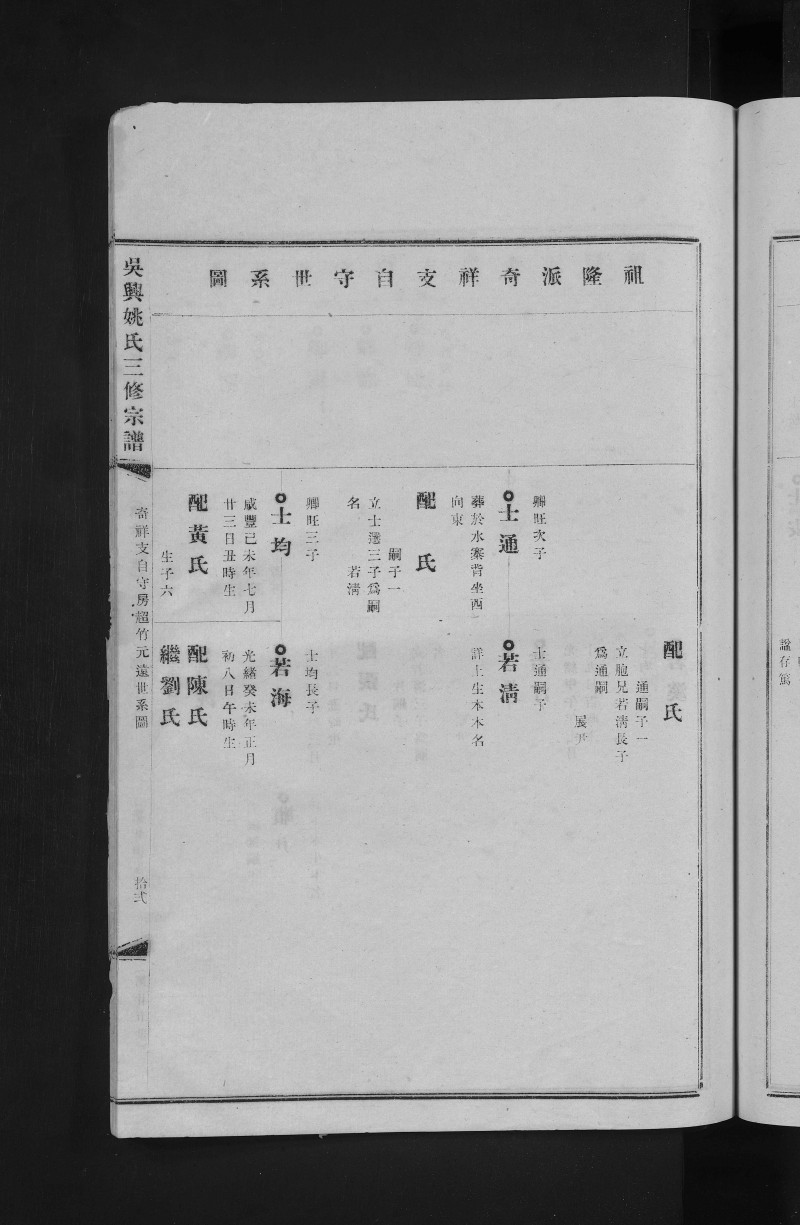 祖隆派奇祥支自守世系圖
配
氏
通嗣子一
立胞兄若淸長子
爲通嗣
展尹
卿旺次子
士通
葬於水寨背坐酉
向東
配 氏
嗣子一
立士選三子爲嗣
名 若淸
士通嗣子
若淸
詳士生本本名
卿旺三子
士均
咸豐己未年七月
廿三日丑時生
配黃氏
生子六
士均長子
若海
光緒癸未年正月
初八日午時生
配陳氏
繼劉氏
吳興姚氏三修宗譜
奇祥支自守房超竹元遠世系圖
拾弍
諡存篤